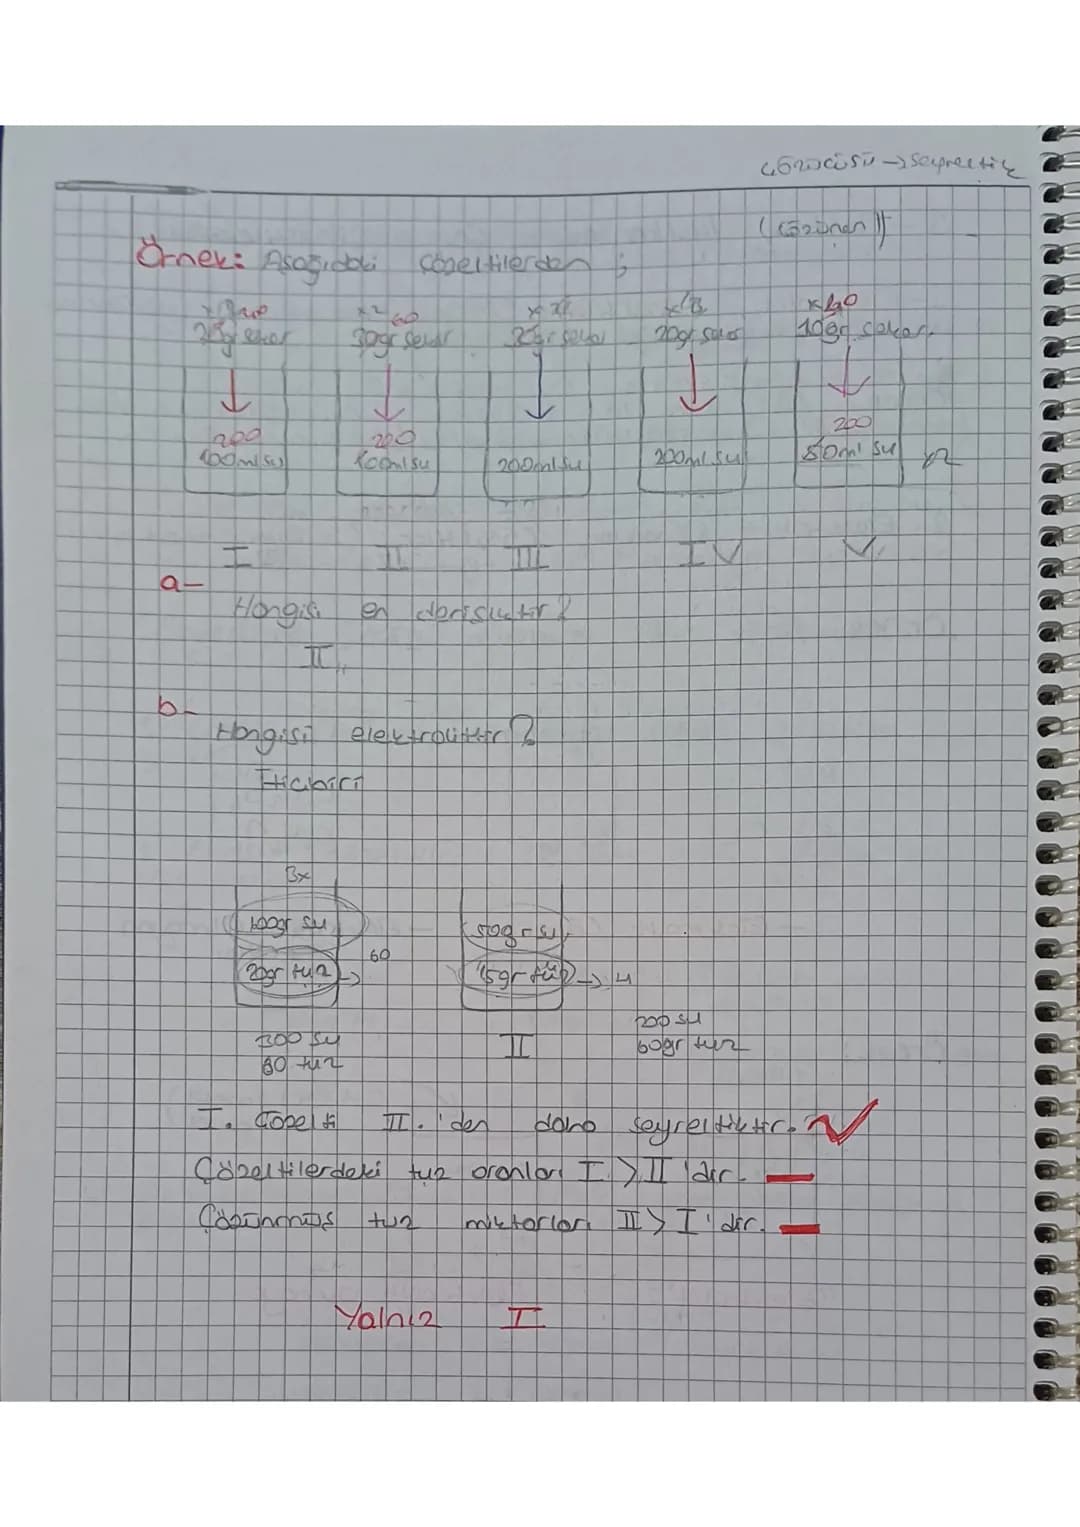 Çözücüsü → Seyreltik
(Çözünen)
Örnek: Aşağıdaki çözeltilerden ;
x2 60
x40
30gr şeker 20gr şeker 10gr şeker
200 200 200
100ml su 100ml su 200ml su 200ml su 50ml su
I II III IV V
a- Hangisi en derişiktir?
II
b- Hangisi elektrolittir?
Hiçbiri
3x
100gr su 50gr su
20gr tuz → 60 15gr tuz → 4
300 su II 200 su
60 tuz 60gr tuz
I. Çözelti II.'den daha seyreltiktir. ✓
Çözeltilerdeki tuz oranları I > II'dir. —
Çözünmüş tuz miktarları II > I'dir. —
Yalnız I